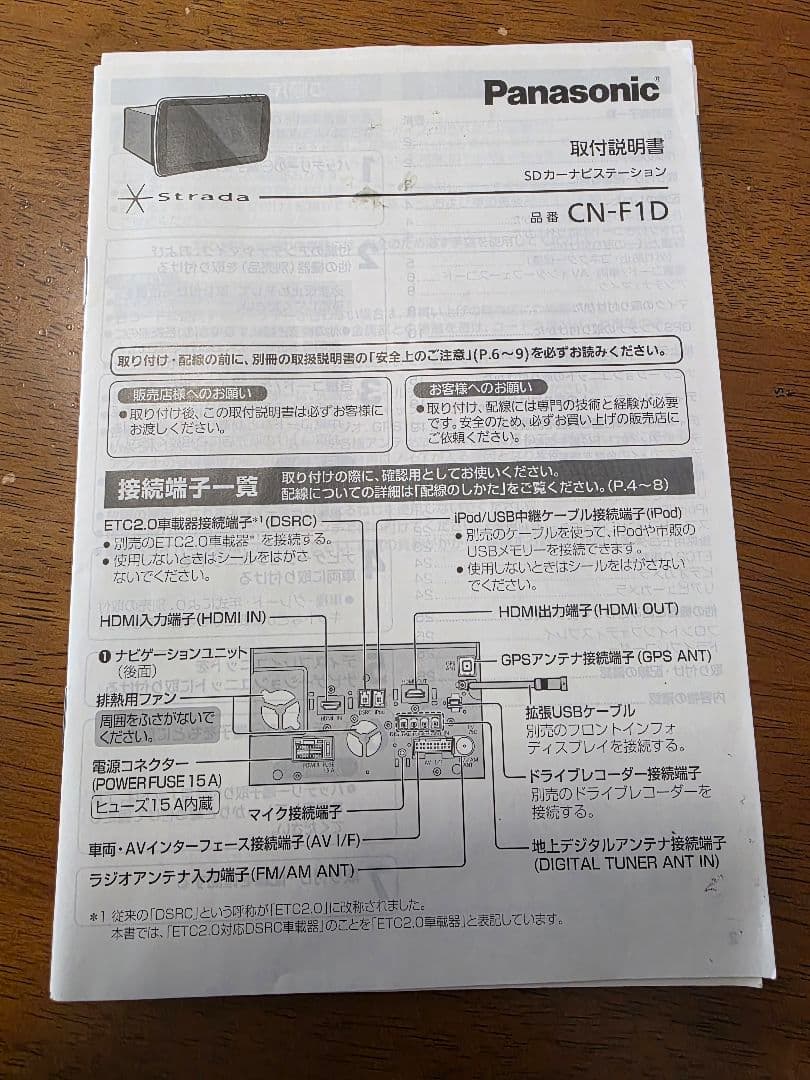 Panasonic
取付説明書
SDカーナビステーション
Strada
品番 CN-F1D
取り付け・配線の前に、別冊の取扱説明書の「安全上のご注意」(P.6～9)を必ずお読みください。
販売店様へのお願い
●取り付け後、この取付説明書は必ずお客様に
お渡しください。
お客様へのお願い
●取り付け、配線には専門の技術と経験が必要
です。安全のため、必ずお買い上げの販売店に
ご依頼ください。
接続端子一覧
取り付けの際に、確認用としてお使いください。
配線についての詳細は「配線のしかた」をご覧ください。(P.4～8)
ETC2.0車載器接続端子*1(DSRC)
●別売のETC2.0車載器*1を接続する。
●使用しないときはシールをはがさ
ないでください。
iPod/USB中継ケーブル接続端子(iPod)
●別売のケーブルを使って、iPodや市販の
USBメモリーを接続できます。
●使用しないときはシールをはがさない
でください。
HDMI入力端子(HDMI IN)
HDMI出力端子(HDMI OUT)
❶ナビゲーションユニット
(後面)
GPSアンテナ接続端子(GPS ANT)
排熱用ファン
周囲をふさがないで
ください。
拡張USBケーブル
別売のフロントインフォ
ディスプレイを接続する。
電源コネクター
(POWER FUSE 15A)
ヒューズ15A内蔵
ドライブレコーダー接続端子
別売のドライブレコーダーを
接続する。
マイク接続端子
車両・AVインターフェース接続端子(AV I/F)
地上デジタルアンテナ接続端子
(DIGITAL TUNER ANT IN)
ラジオアンテナ入力端子(FM/AM ANT)
*1 従来の「DSRC」という呼称が「ETC2.0」に改称されました。
本書では、「ETC2.0対応DSRC車載器」のことを「ETC2.0車載器」と表記しています。